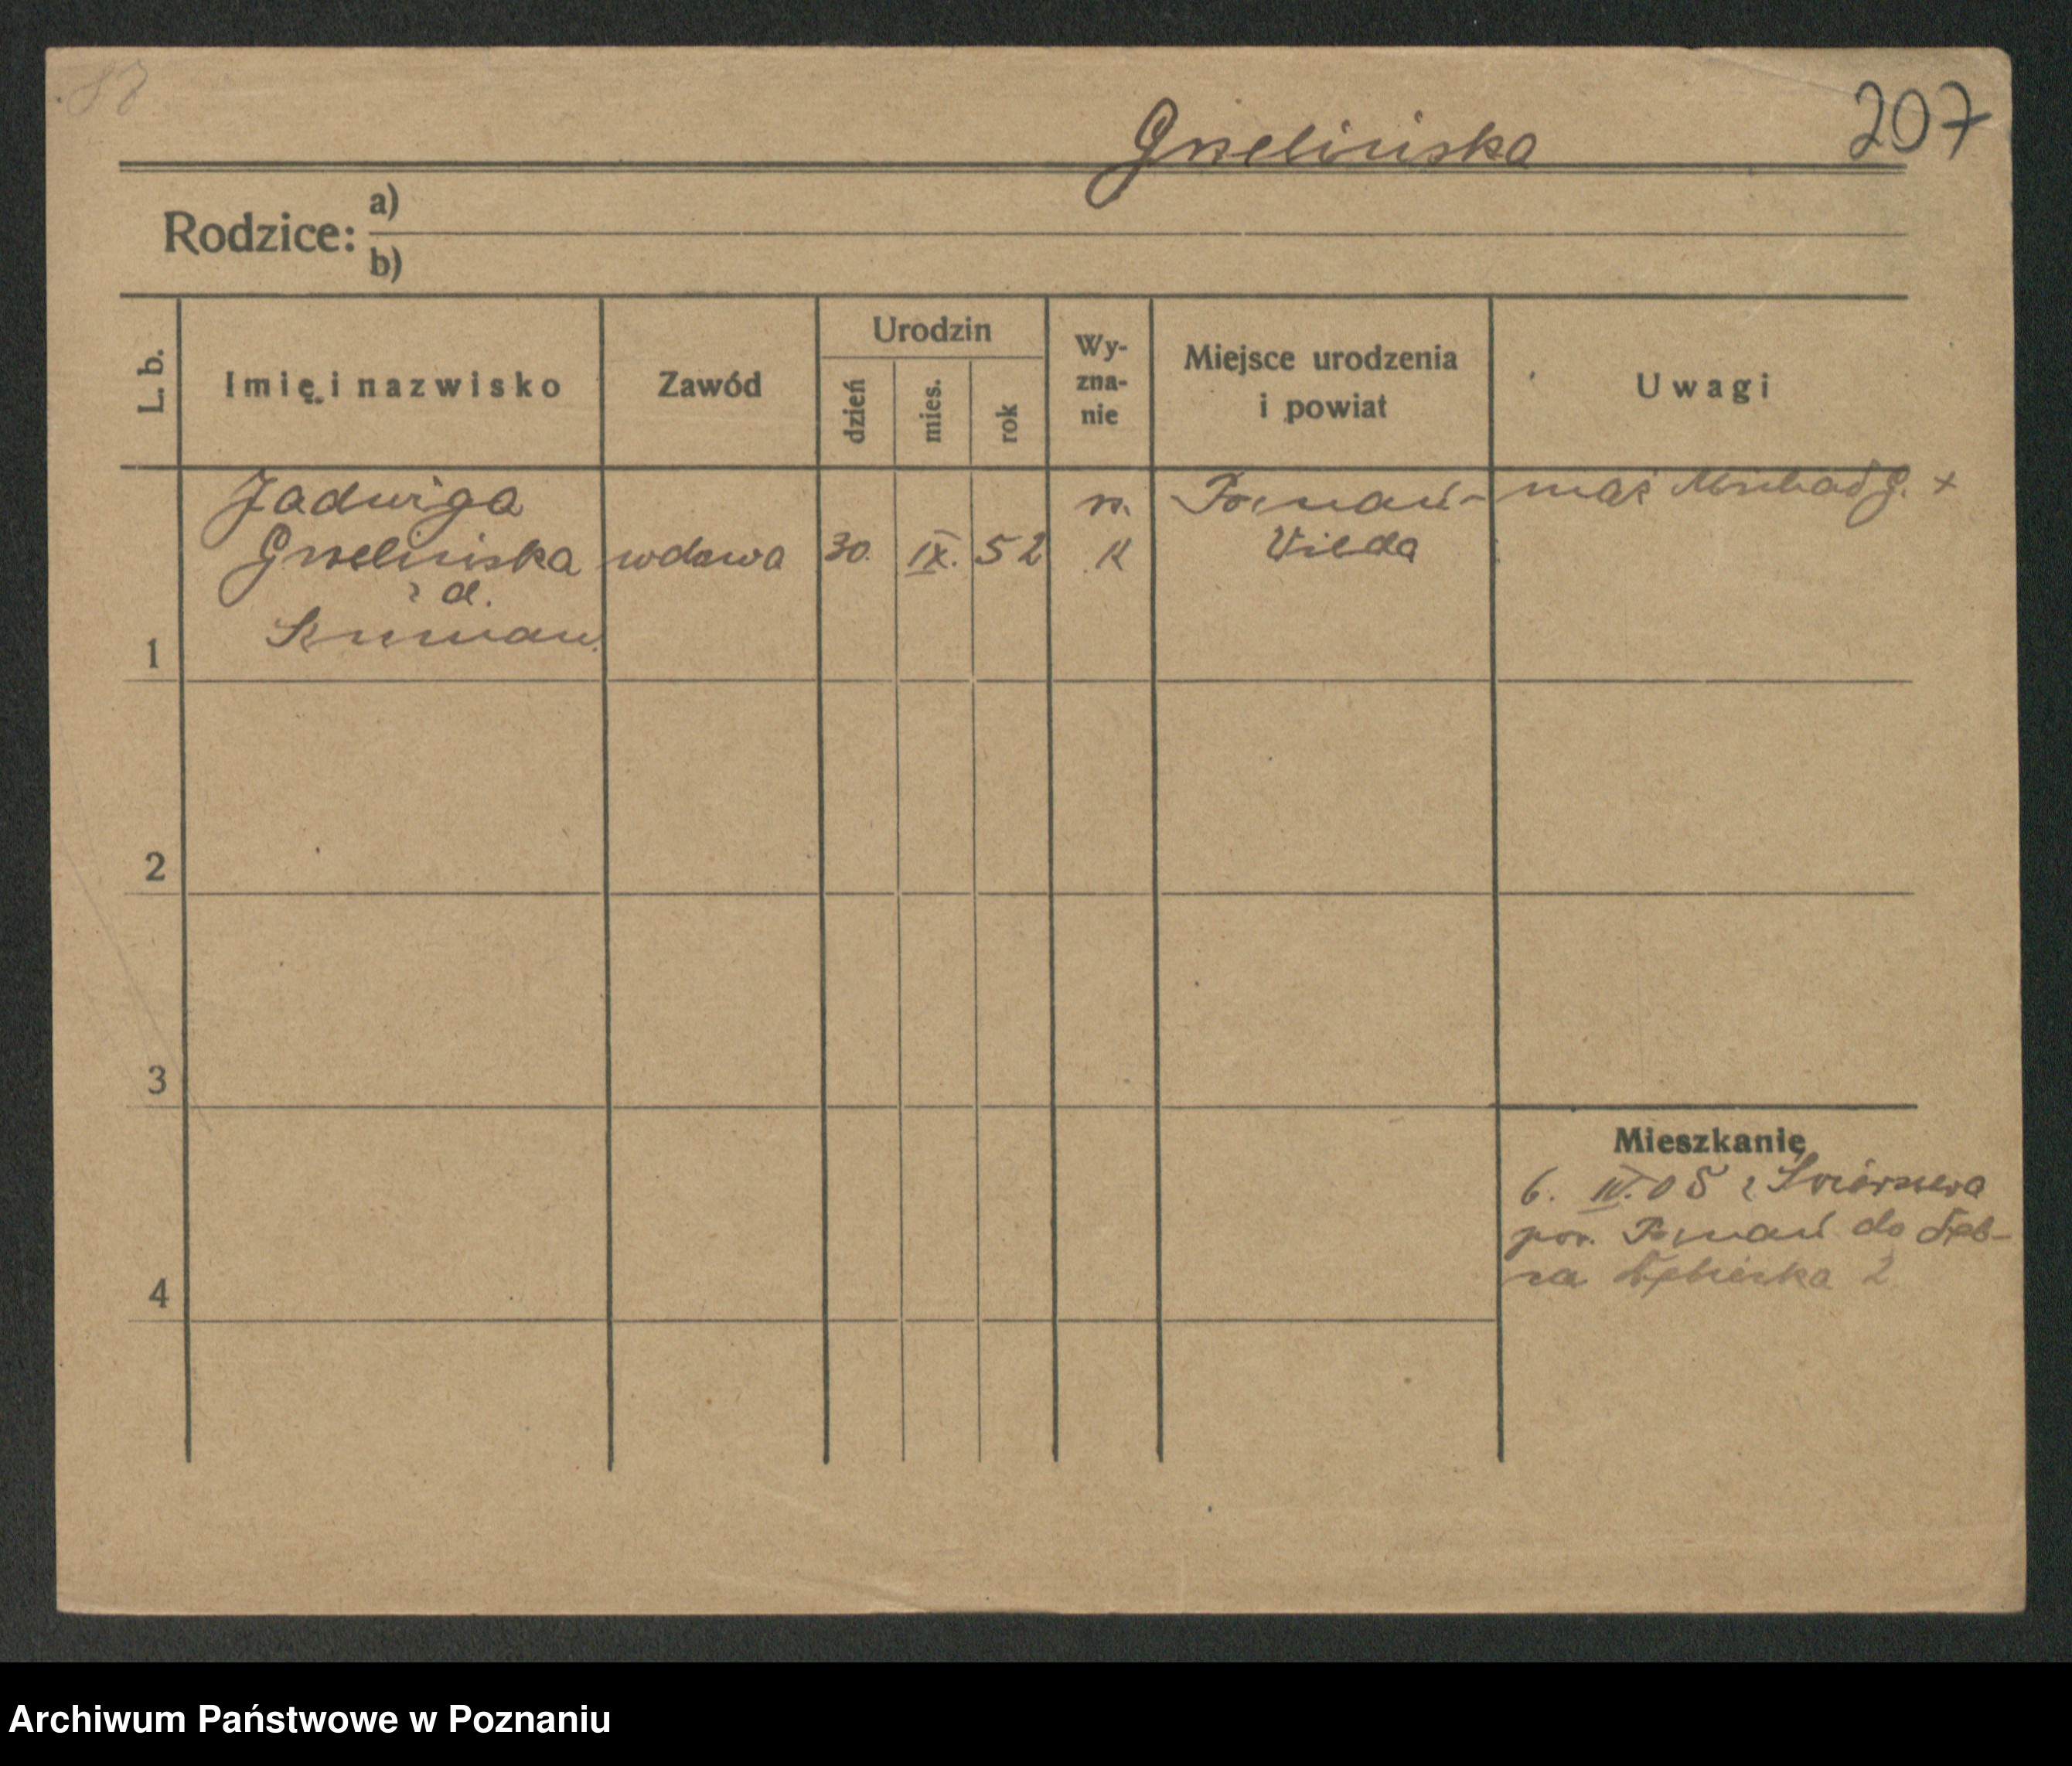 Grzelińska
207
Rodzice:
a)
b)
L. b.
Imię i nazwisko
Zawód
Urodzin
dzień
mies.
rok
Wy-
zna-
nie
Miejsce urodzenia
i powiat
Uwagi
Jadwiga
Grzelińska
z d.
wdowa
30.
IX.
52
rz.
k
Poznań-
Wilda
mąż Michał G. +
1
2
3
4
Mieszkanie
6. IV. 05 z
pow. Poznań do Dęb-
ca Dębiecka 2
Archiwum Państwowe w Poznaniu